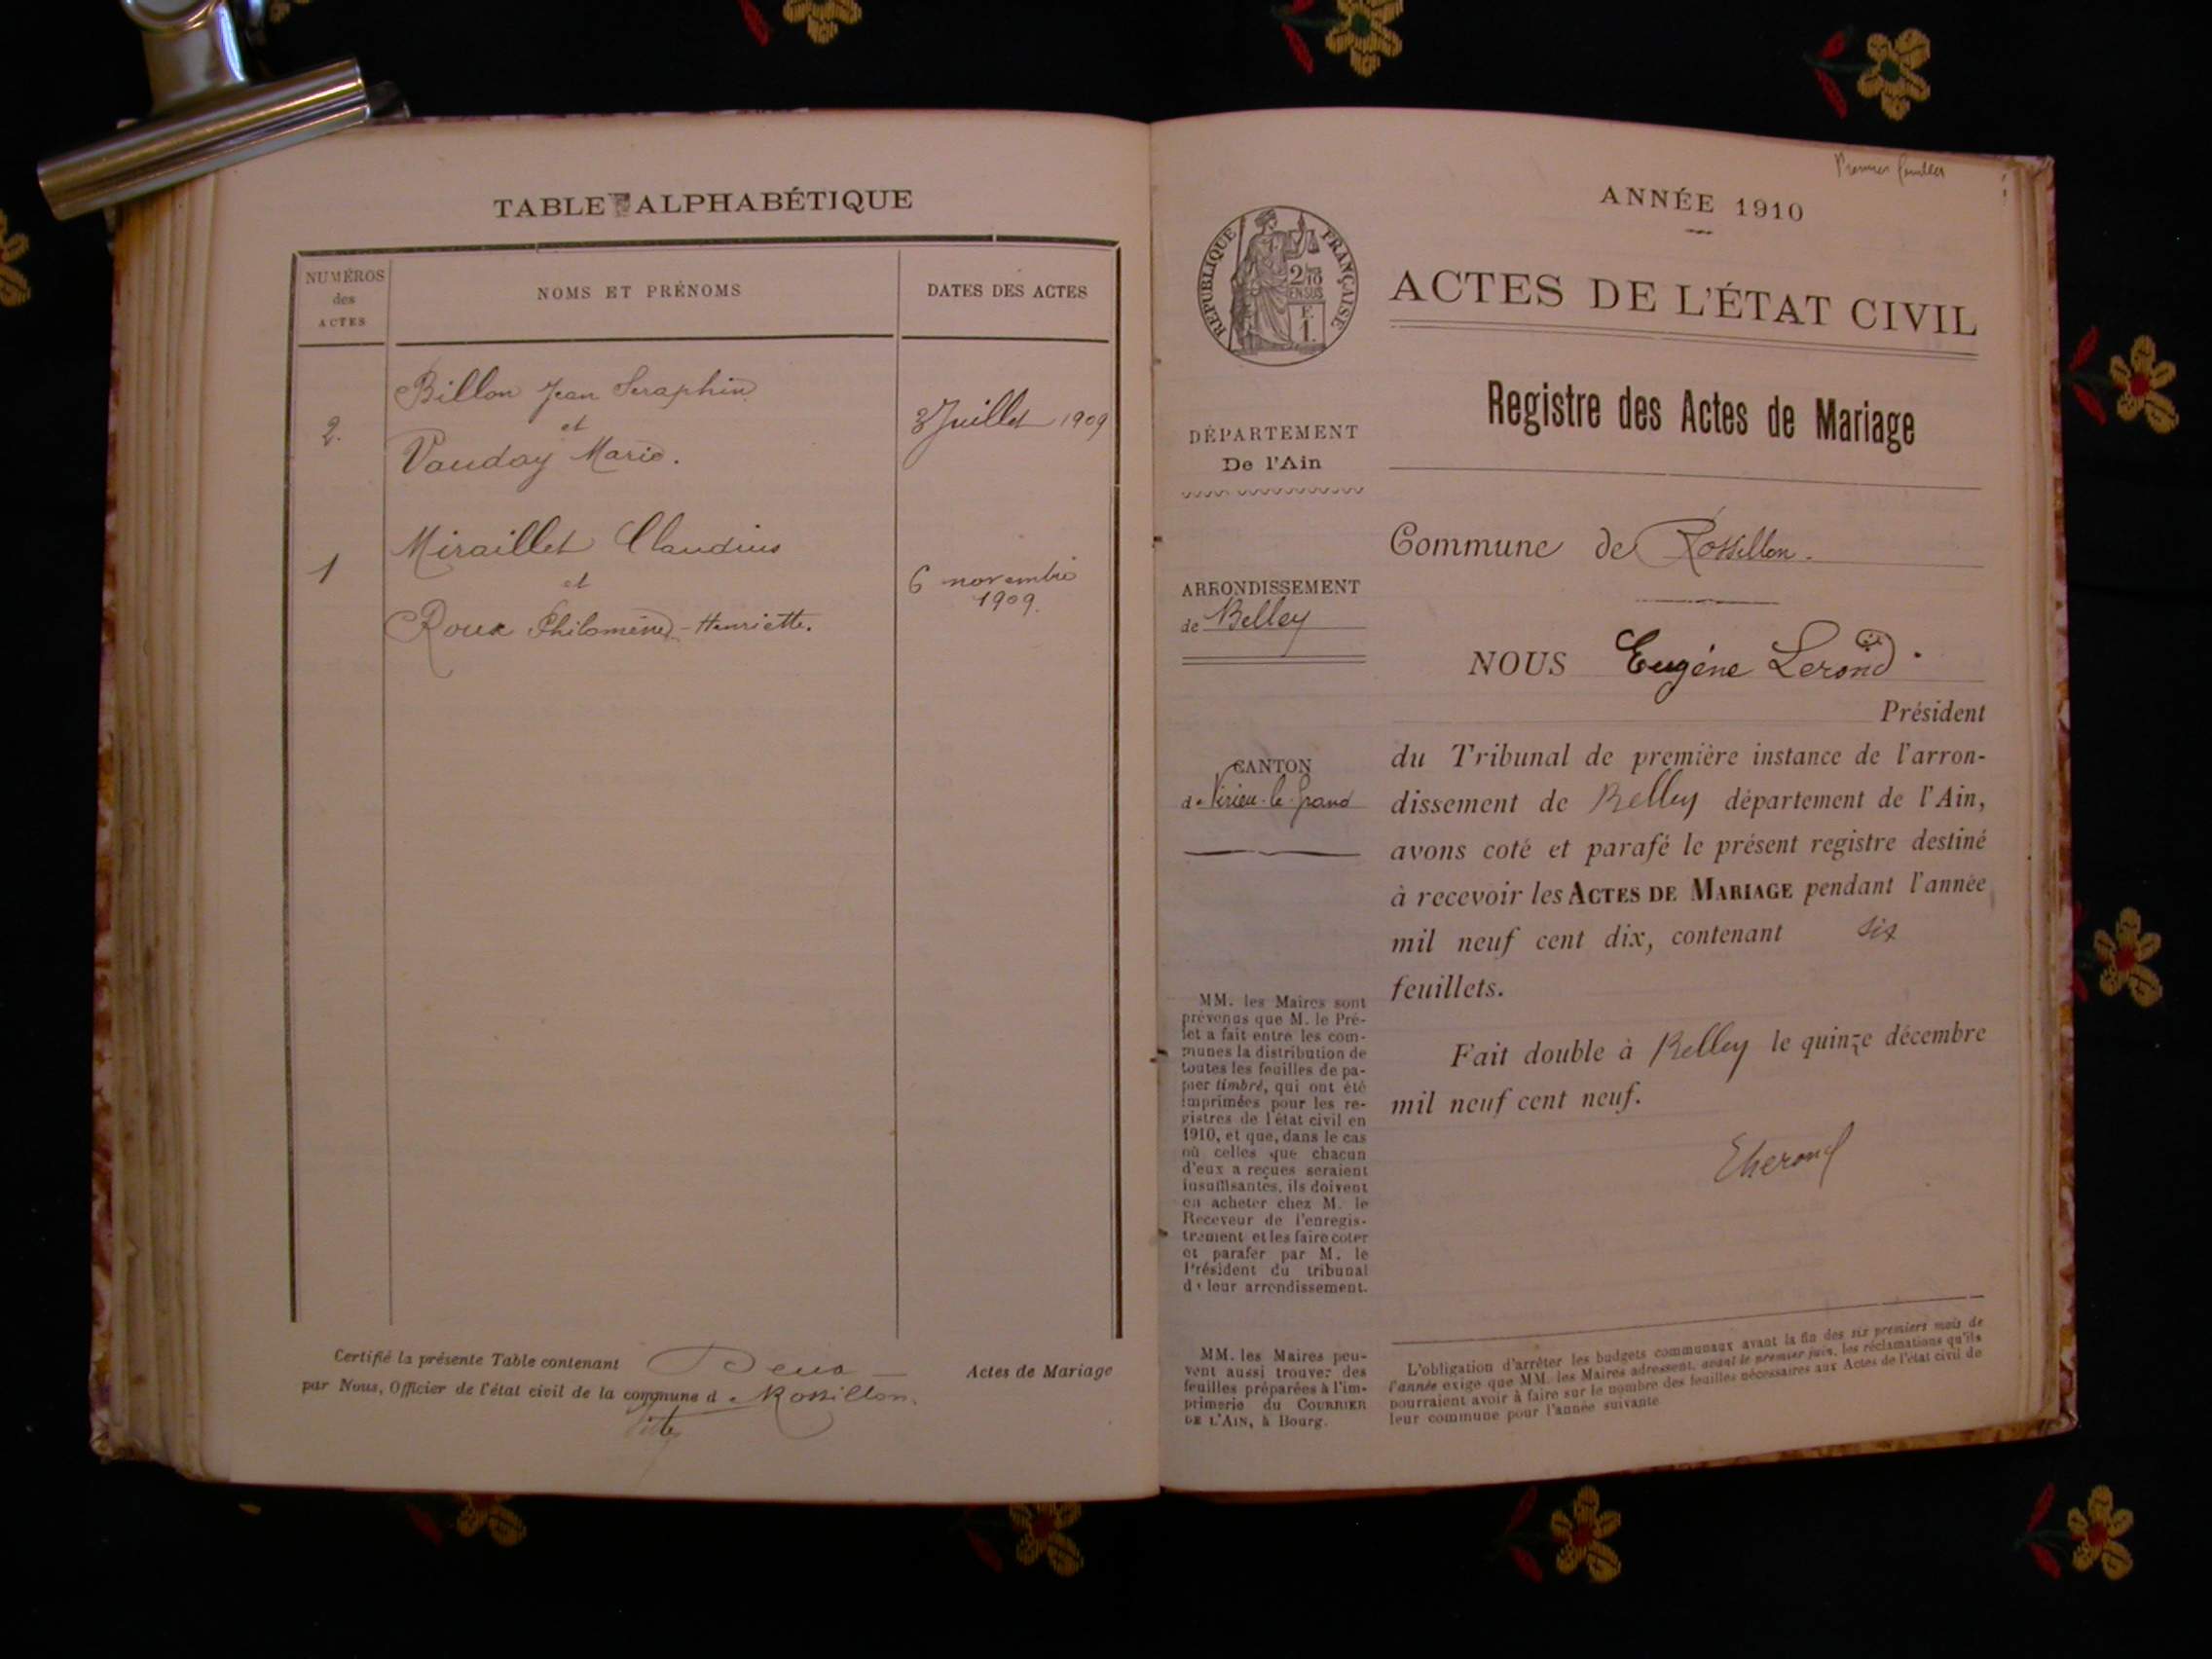 TABLE ALPHABÉTIQUE
NUMÉROS
des
ACTES
NOMS ET PRÉNOMS
DATES DES ACTES
2.
Billon Jean Séraphin
et
Vauday Marie.
3 Juillet 1909
1
Miraillet Claudius
et
Roux Philomène-Henriette.
6 novembre
1909.
Certifié la présente Table contenant Deux Actes de Mariage
par Nous, Officier de l'état civil de la commune d Rossillon.
Premier feuillet
ANNÉE 1910
RÉPUBLIQUE FRANÇAISE
2/10
EN SUS
F.
1.
ACTES DE L'ÉTAT CIVIL
Registre des Actes de Mariage
DÉPARTEMENT
De l'Ain
ARRONDISSEMENT
de Belley
CANTON
de Virieu-le-Grand
MM. les Maires sont
prévenus que M. le Pré-
fet a fait entre les com-
munes la distribution de
toutes les feuilles de pa-
pier timbré, qui ont été
imprimées pour les re-
gistres de l'état civil en
1910, et que, dans le cas
où celles que chacun
d'eux a reçues seraient
insuffisantes, ils doivent
en acheter chez M. le
Receveur de l'enregis-
trement et les faire coter
et parafer par M. le
Président du tribunal
de leur arrondissement.
MM. les Maires peu-
vent aussi trouver des
feuilles préparées à l'im-
primerie du COURRIER
DE L'AIN, à Bourg.
Commune de Rossillon.
NOUS Eugène Lerond.
Président
du Tribunal de première instance de l'arron-
dissement de Belley département de l'Ain,
avons coté et parafé le présent registre destiné
à recevoir les ACTES DE MARIAGE pendant l'année
mil neuf cent dix, contenant six
feuillets.
Fait double à Belley le quinze décembre
mil neuf cent neuf.
ELerond
L'obligation d'arrêter les budgets communaux avant la fin des six premiers mois de
l'année exige que MM. les Maires adressent, avant le premier juin, les réclamations qu'ils
pourraient avoir à faire sur le nombre des feuilles nécessaires aux Actes de l'état civil de
leur commune pour l'année suivante